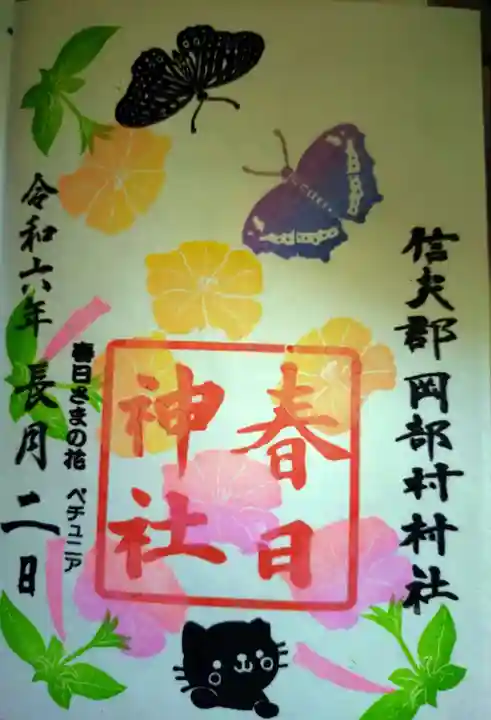 信夫郡岡部村村社
春日
神社
春日さまの花 ペチュニア
令和六年 長月二日